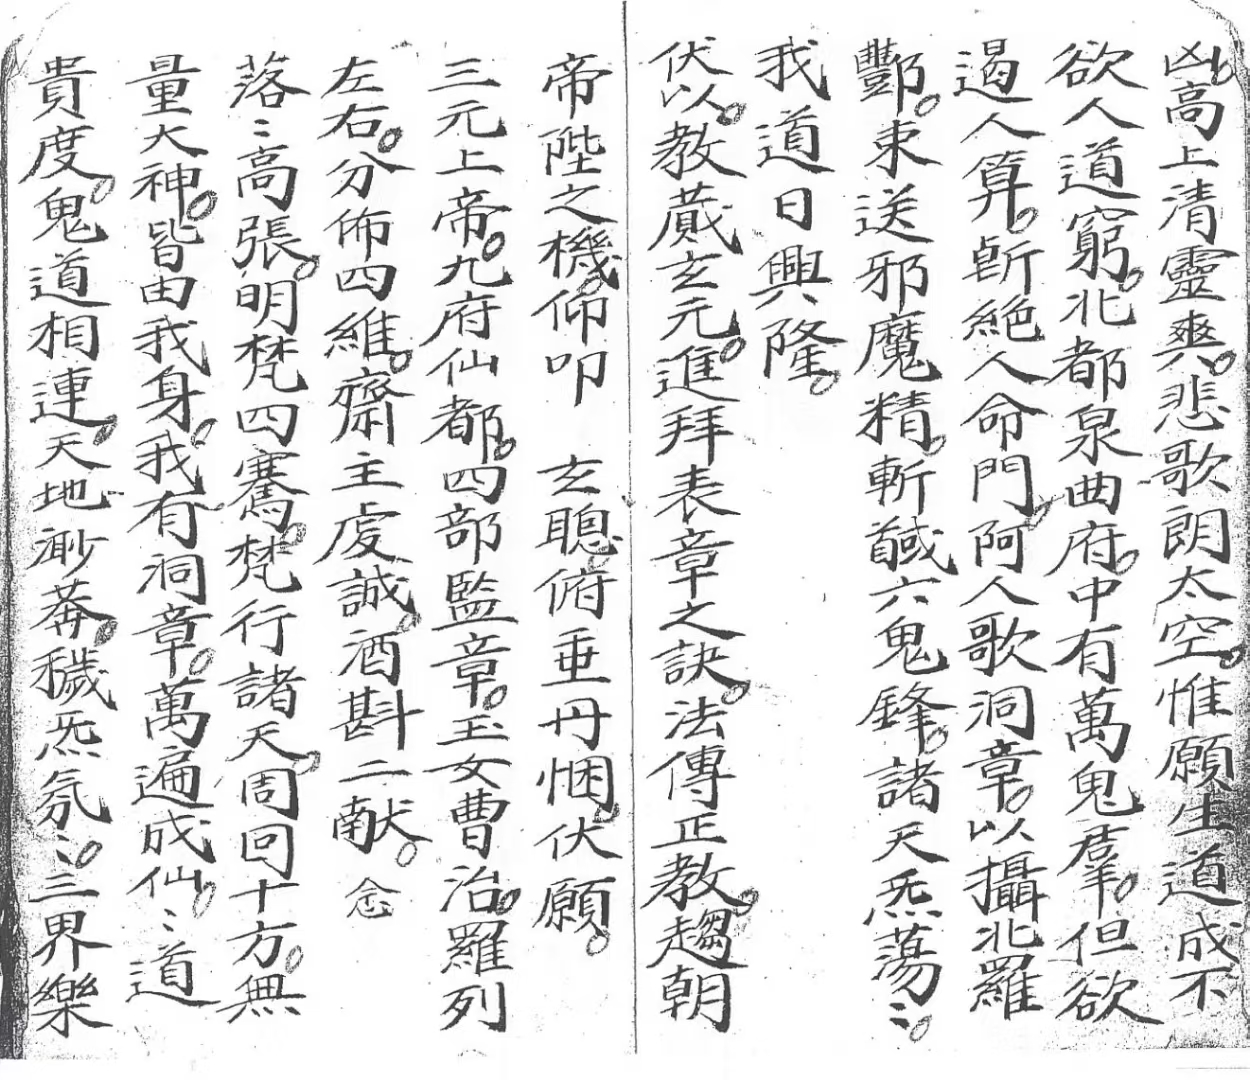 凶。高上清靈爽。悲歌朗太空。惟願生道成。不
欲人道窮。北都泉曲府。中有萬鬼羣。但欲
遏人算。斷絕人命門。阿人歌洞章。以攝北羅
酆。束送邪魔精。斬馘六鬼鋒。諸天炁蕩〻。
我道日興隆。
伏以。教蕆玄元。進拜表章之訣。法傳正教。趨朝
帝陛之機。仰叩　玄聰。俯垂丹悃。伏願。
三元上帝。九府仙都。四部監章。玉女曹治。羅列
左右。分佈四維。齋主虔誠。酒斟二献。念
落〻高張。明梵四騫。梵行諸天。周回十方。無
量大神。皆由我身。我有洞章。萬遍成仙。〻道
貴度。鬼道相連。天地渺莽。穢炁氛〻。三界樂